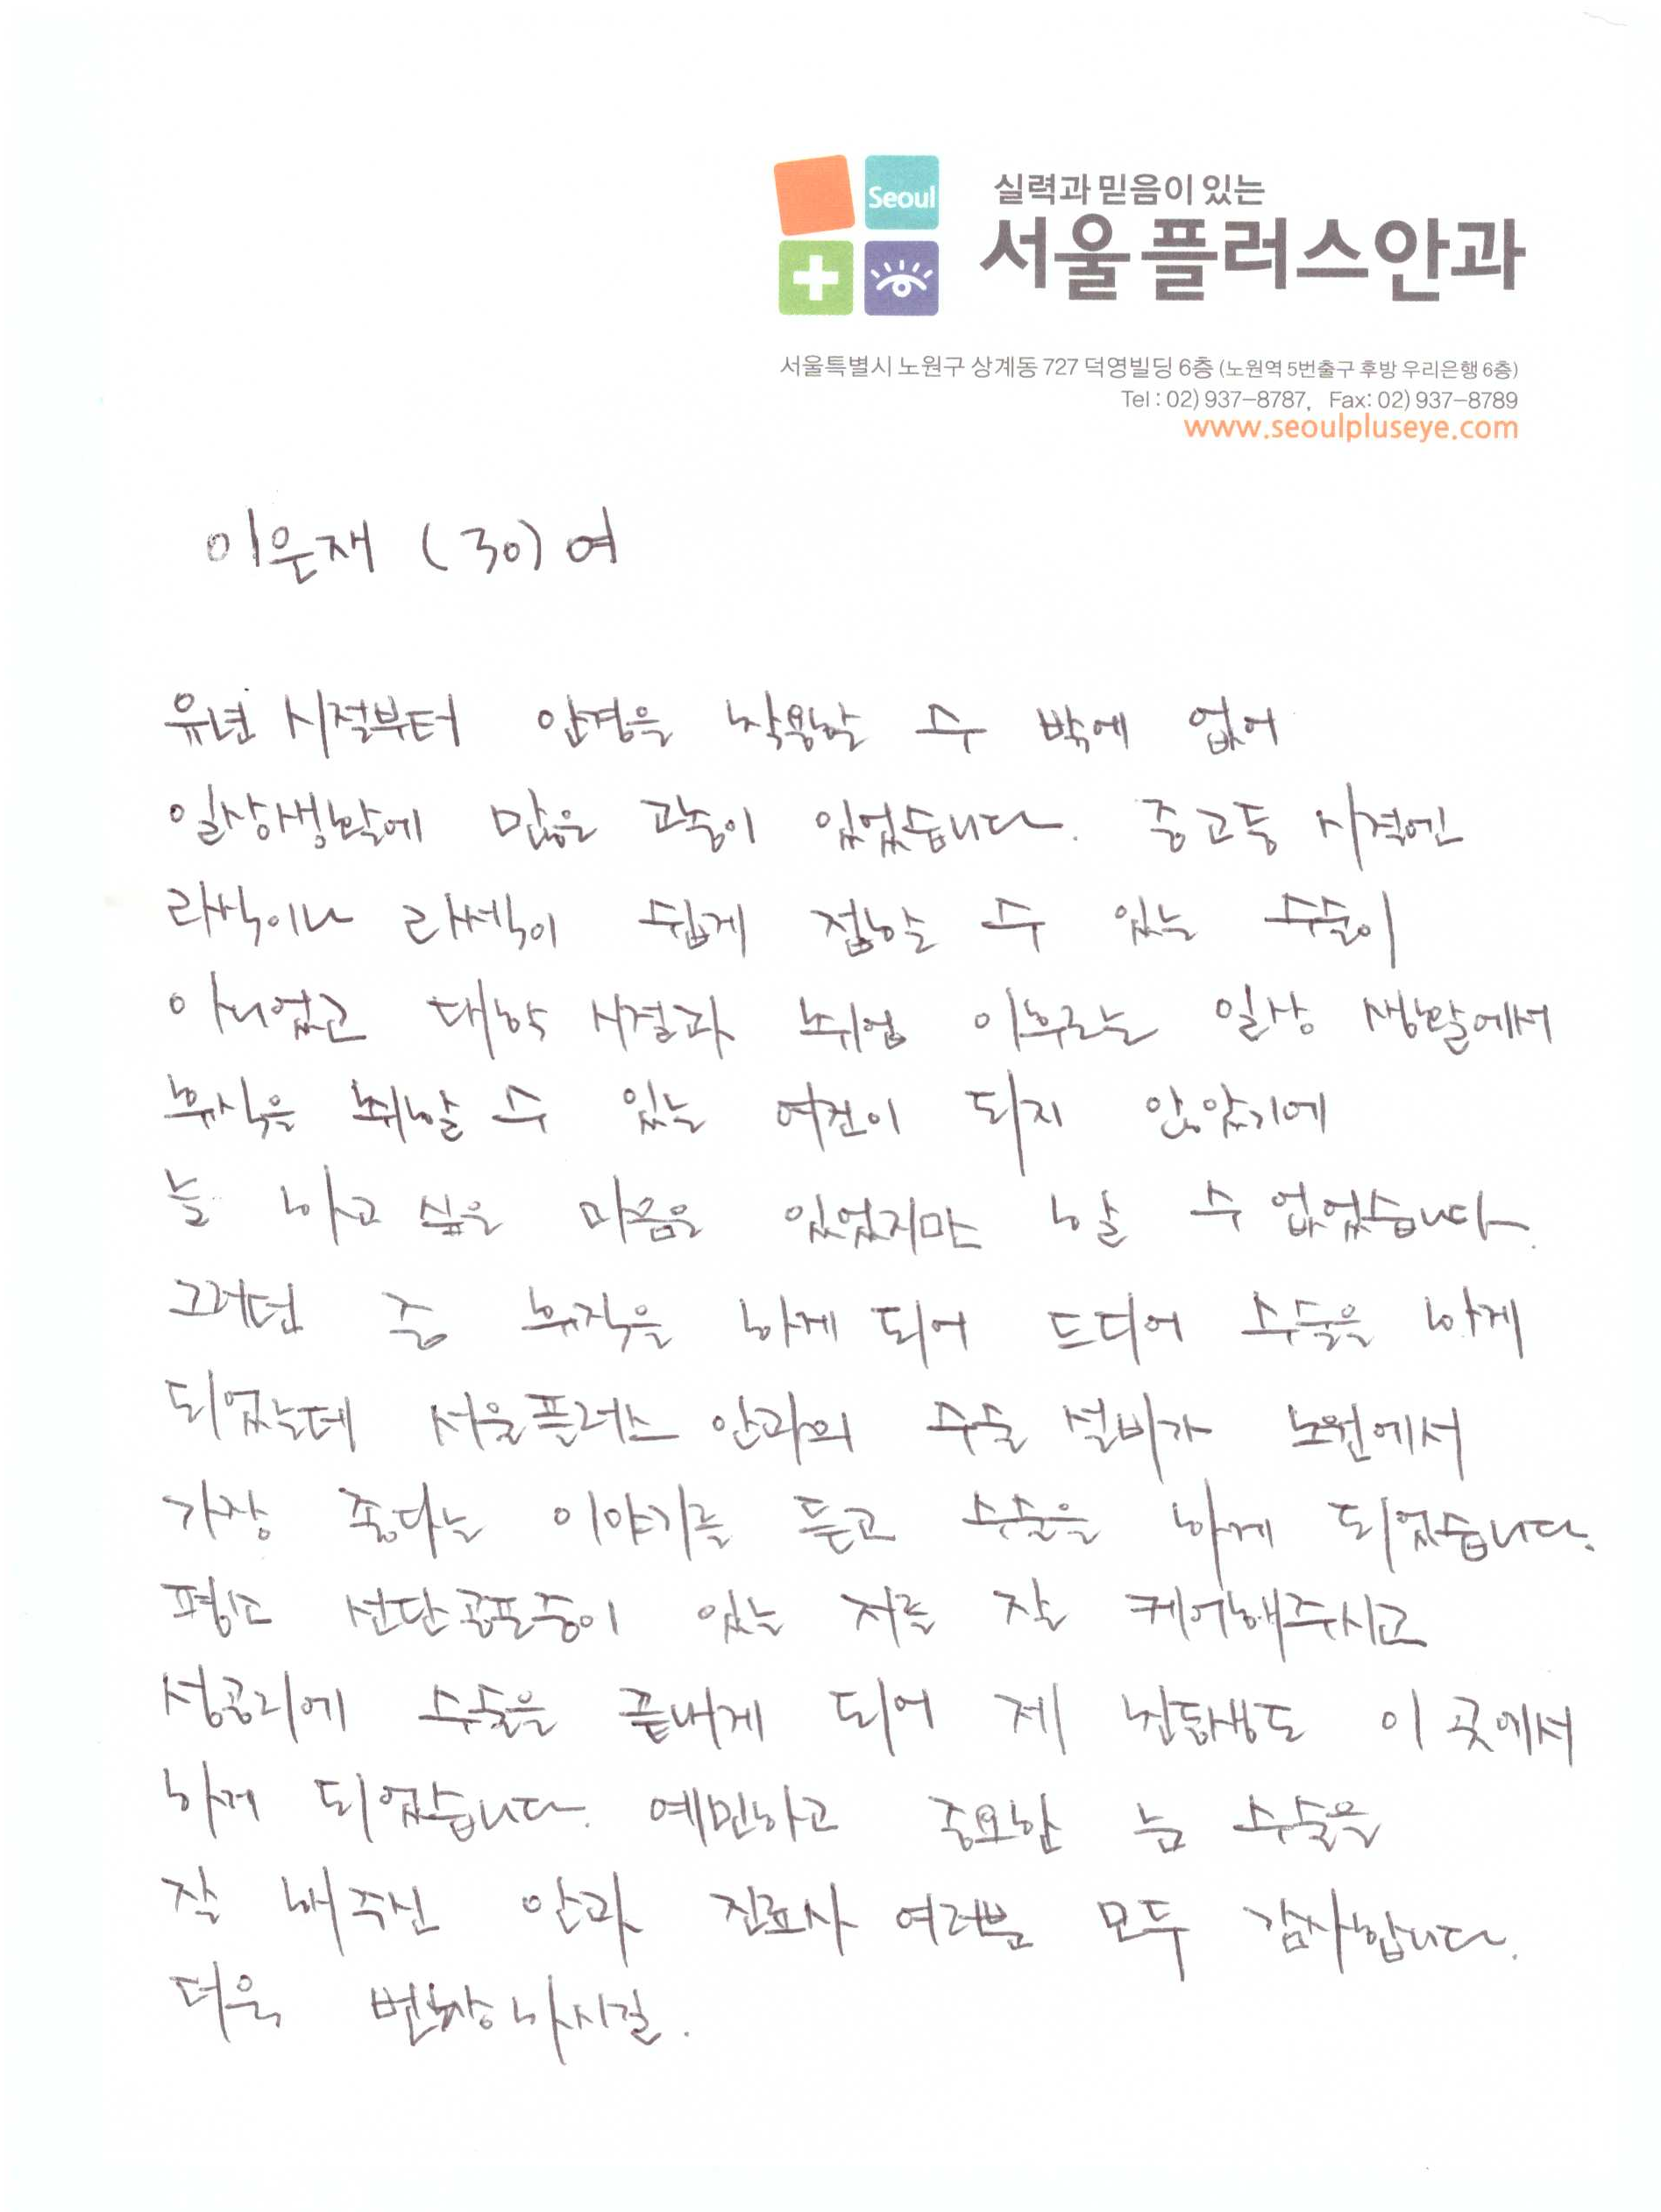 Seoul
실력과 믿음이 있는
서울플러스안과
서울특별시 노원구 상계동 727 덕영빌딩 6층 (노원역 5번출구 후방 우리은행 6층)
Tel : 02) 937-8787, Fax: 02) 937-8789
www.seoulpluseye.com
이은재 (30) 여
유년 시절부터 안경을 착용할 수 밖에 없어
일상생활에 많은 고충이 있었습니다. 중고등 시절엔
라식이나 라섹이 쉽게 접할 수 있는 수술이
아니었고 대학 시절과 취업 이후로는 일상 생활에서
휴식을 취할 수 있는 여건이 되지 않았기에
늘 하고 싶은 마음은 있었지만 할 수 없었습니다.
그러던 중 휴직을 하게 되어 드디어 수술을 하게
되었는데 서울플러스 안과의 수술 설비가 노원에서
가장 좋다는 이야기를 듣고 수술을 하게 되었습니다.
평소 선단공포증이 있는 저를 잘 케어해주시고
성공리에 수술을 끝내게 되어 제 친동생도 이 곳에서
하게 되었습니다. 예민하고 중요한 눈 수술을
잘 해 주신 안과 진료사 여러분 모두 감사합니다.
더욱 번창하시길.